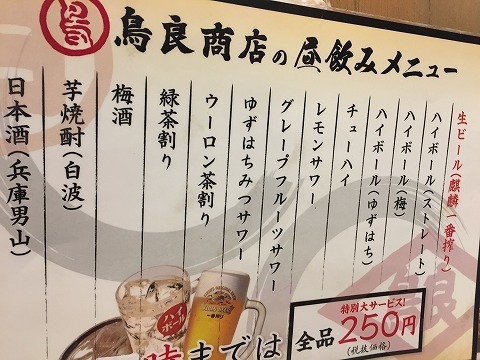 鳥
鳥良商店の昼飲みメニュー
生ビール(麒麟一番搾り)
ハイボール(ストレート)
ハイボール(梅)
ハイボール(ゆずはち)
チューハイ
レモンサワー
グレープフルーツサワー
ゆずはちみつサワー
ウーロン茶割り
緑茶割り
梅酒
芋焼酎(白波)
日本酒(兵庫男山)
ハイボール
一番搾り
特別大サービス!
全品250円
(税抜価格)
時までは